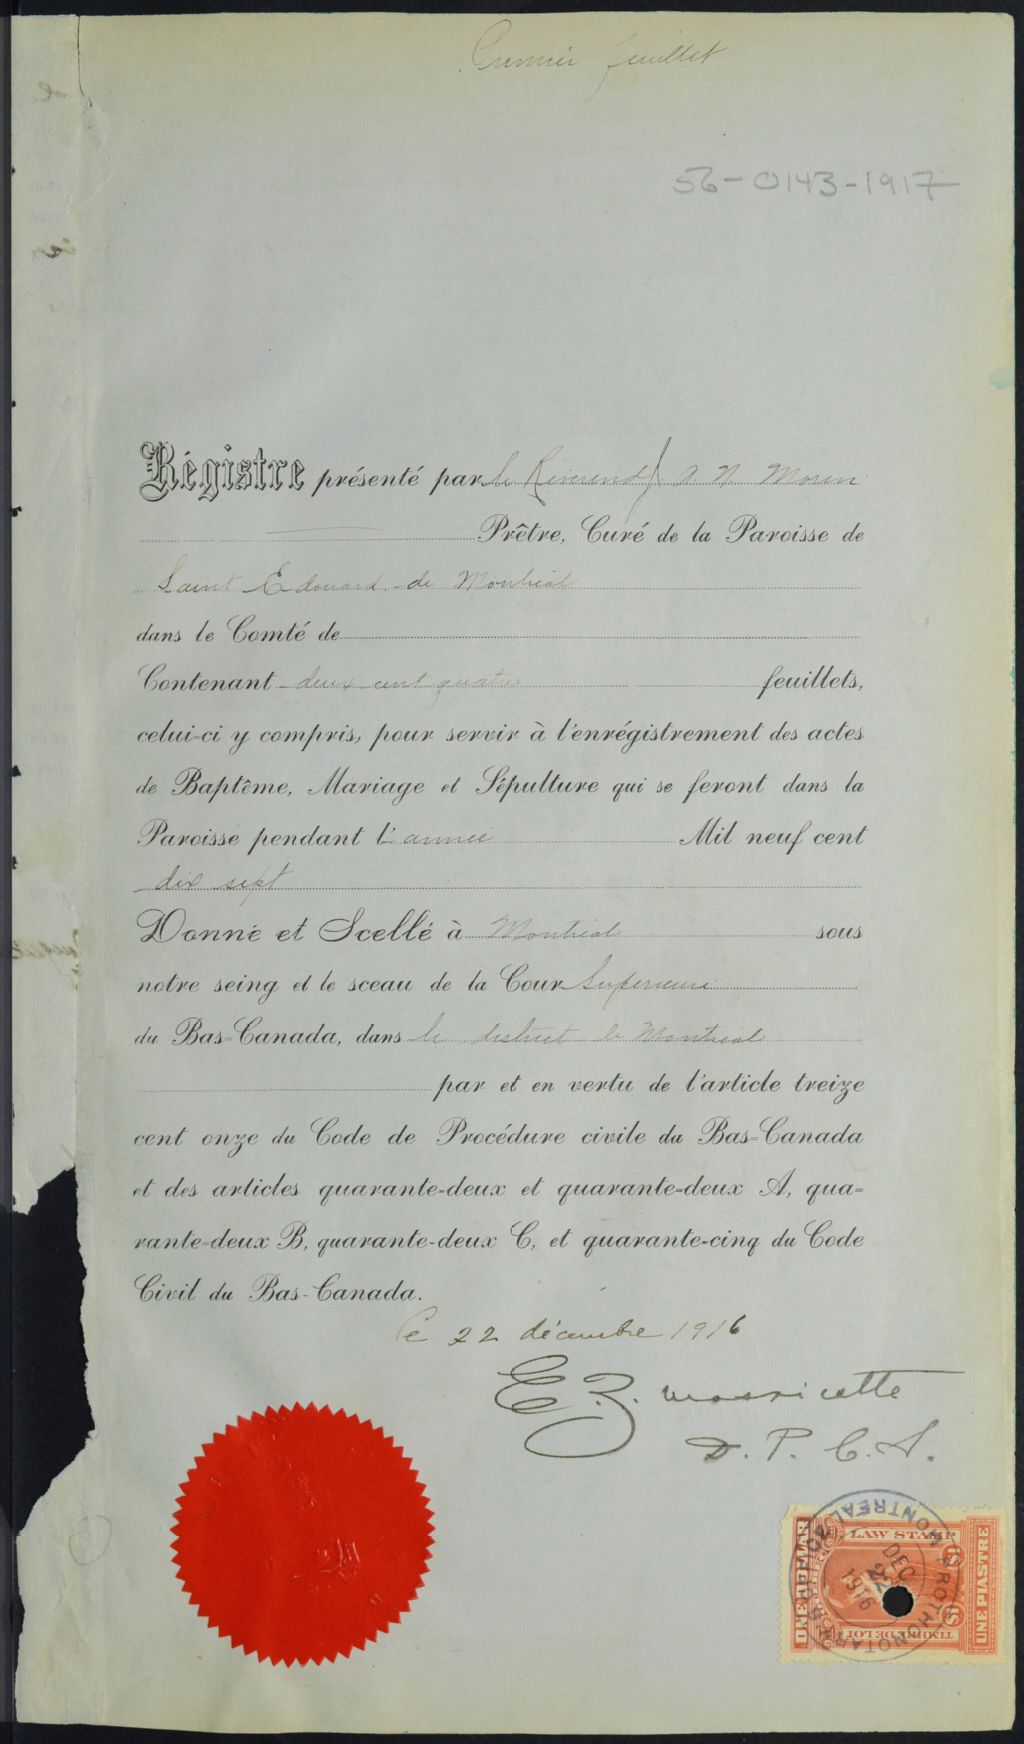 Premier feuillet
56-0143-1917
Régistre présenté par le Révérend J. A. N. Morin
Prêtre, Curé de la Paroisse de
Saint Edouard de Montréal
dans le Comté de
Contenant deux cent quatre feuillets,
celui-ci y compris, pour servir à l'enrégistrement des actes
de Baptême, Mariage et Sépulture qui se feront dans la
Paroisse pendant l'année Mil neuf cent
dix sept
Donné et Scellé à Montréal sous
notre seing et le sceau de la Cour Supérieure
du Bas-Canada, dans le district de Montréal
par et en vertu de l'article treize
cent onze du Code de Procédure civile du Bas-Canada
et des articles quarante-deux et quarante-deux A, qua-
rante-deux B, quarante-deux C, et quarante-cinq du Code
Civil du Bas-Canada.
Ce 22 décembre 1916
E. Z. Massicotte
D. P. C. S.
ONE DOLLAR
LAW STAMP
$1
$1
TIMBRE DE LOI
UNE PIASTRE
MONTREAL PROTHONOTARY
DEC
22
1916